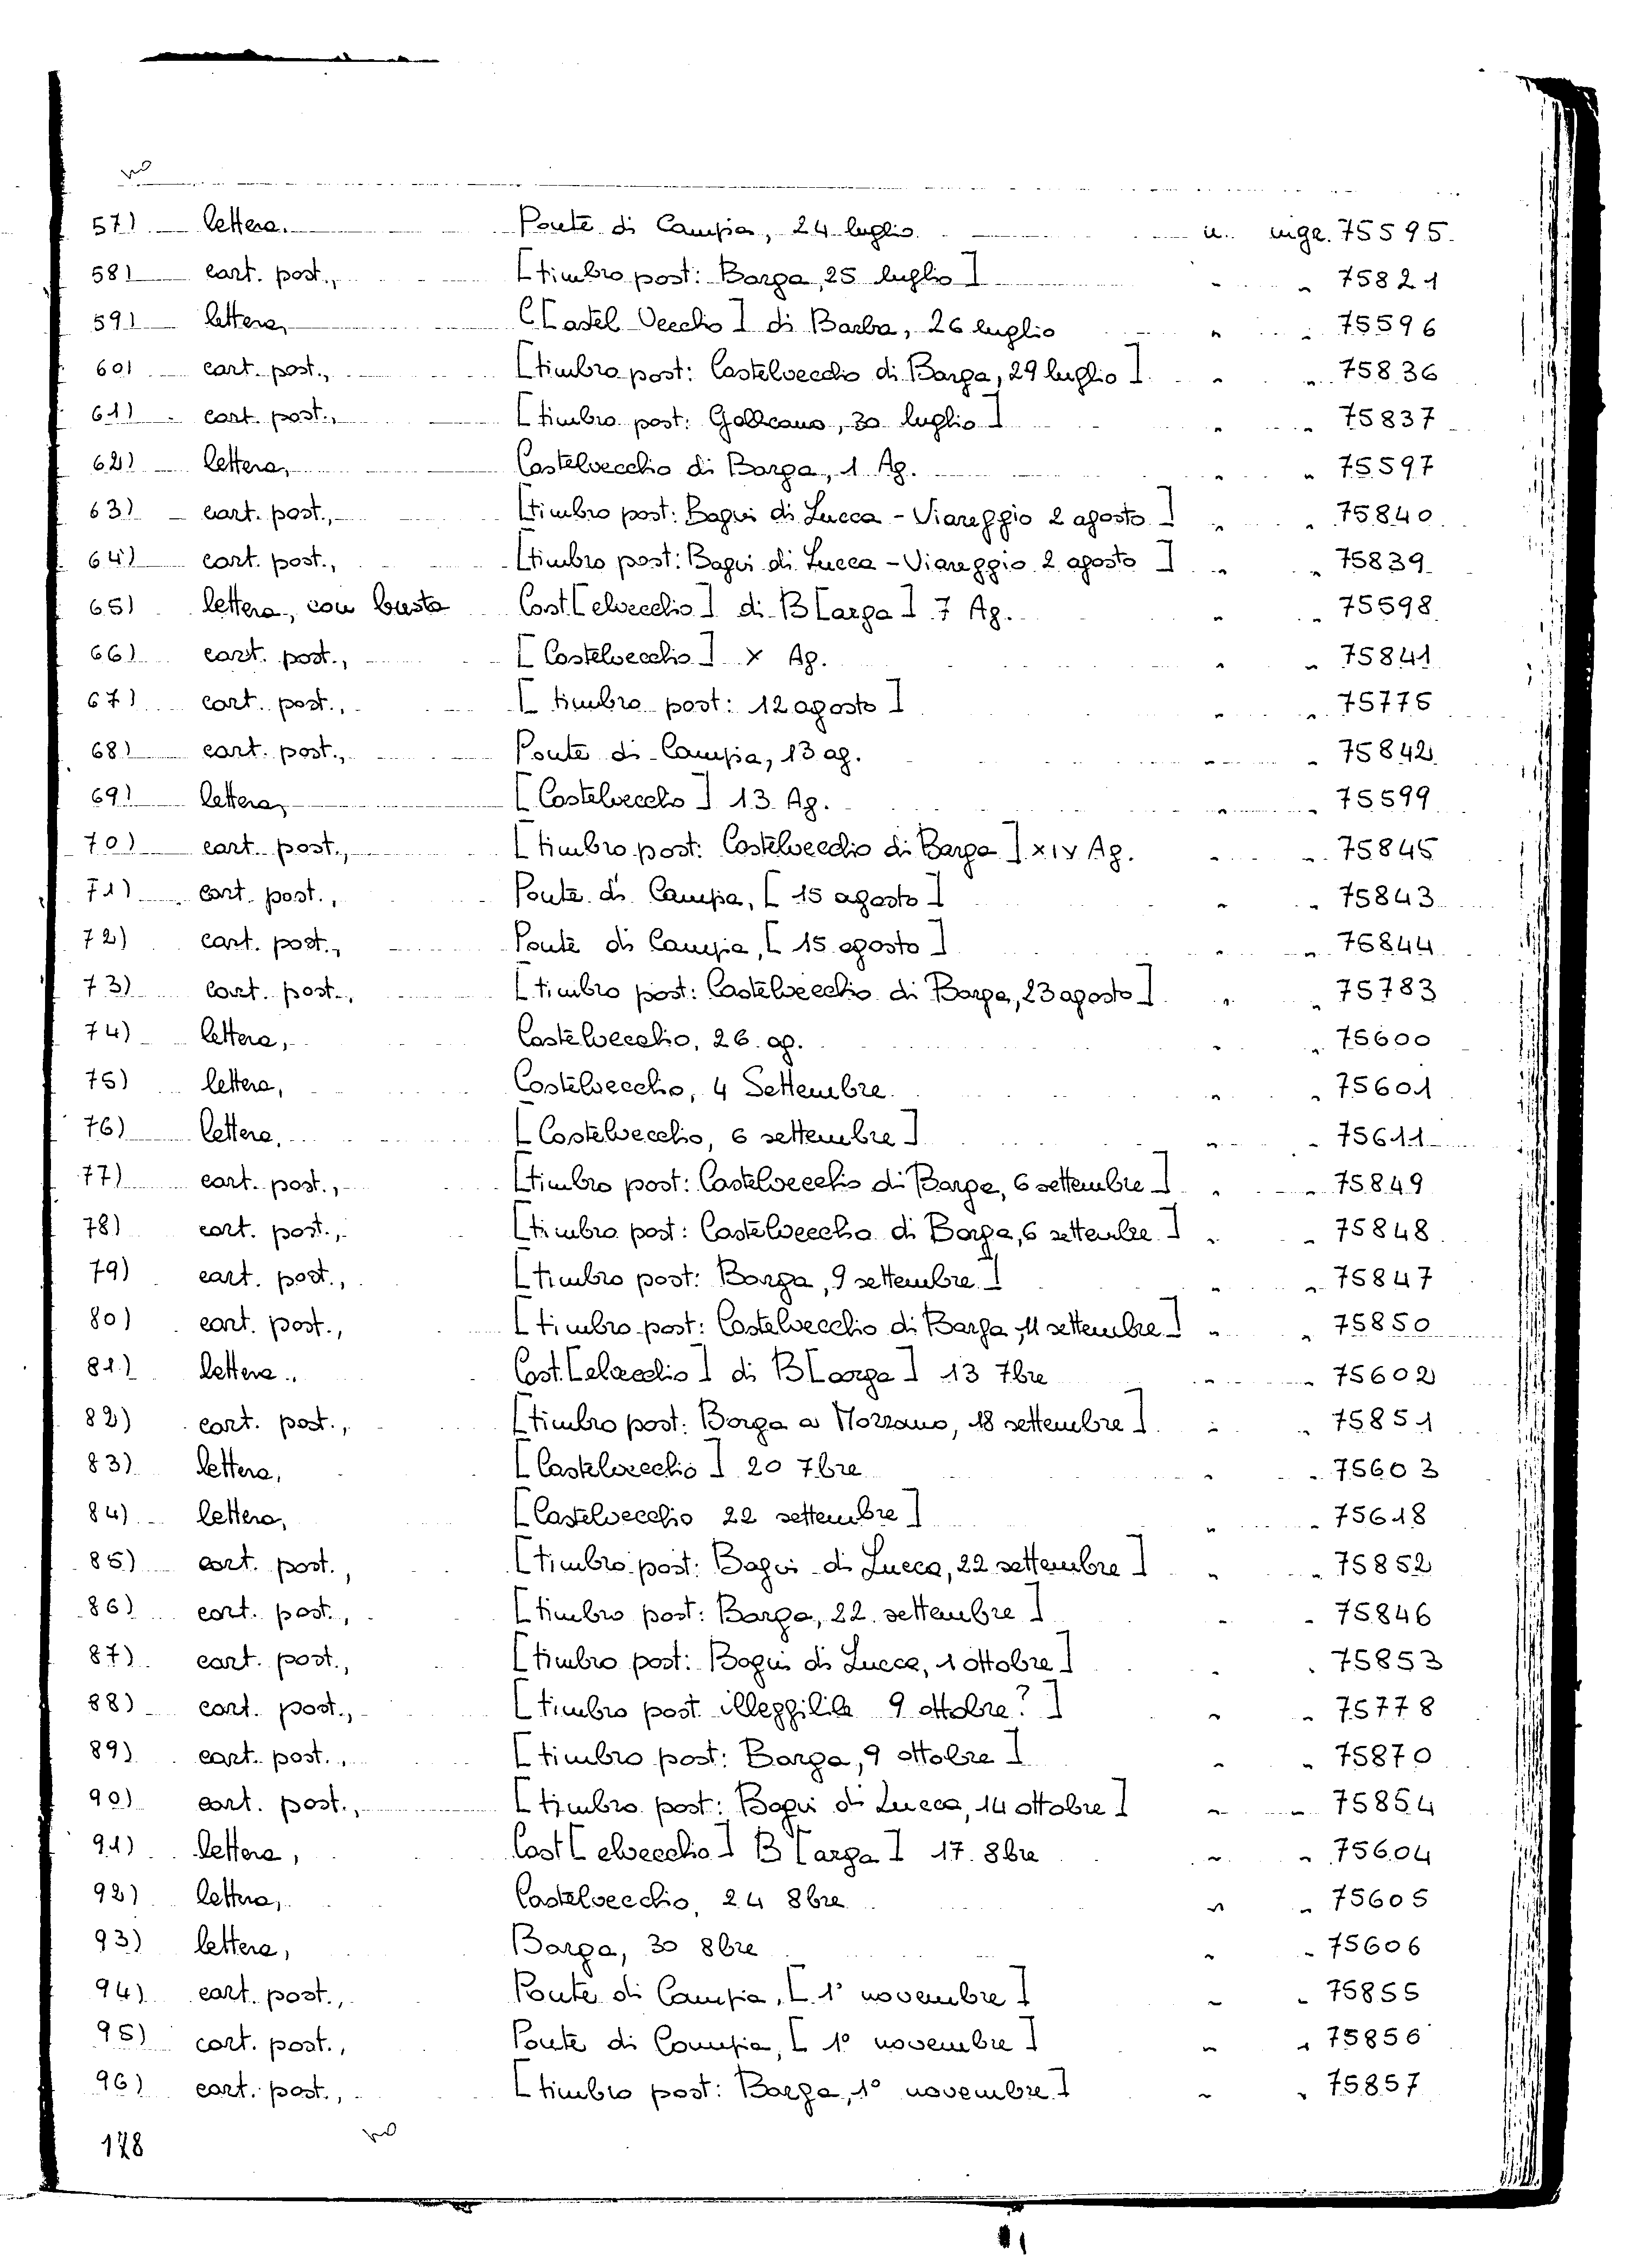 no
57) lettera, Ponte di Campia, 24 luglio n. ingr. 75595
58) cart. post., [timbro post: Barga, 25 luglio] " " 75821
59) lettera, C[astel Vecchio] di Barba, 26 luglio " " 75596
60) cart. post., [timbro post: Castelvecchio di Barga, 29 luglio] " " 75836
61) cart. post., [timbro post: Gallicano, 30 luglio] " " 75837
62) lettera, Castelvecchio di Barga, 1 Ag. " " 75597
63) cart. post., [timbro post: Bagni di Lucca - Viareggio 2 agosto] " " 75840
64) cart. post., [timbro post: Bagni di Lucca - Viareggio 2 agosto] " " 75839
65) lettera, con busta Cast[elvecchio] di B[arga] 7 Ag. " " 75598
66) cart. post., [Castelvecchio] X Ag. " " 75841
67) cart. post., [timbro post: 12 agosto] " " 75775
68) cart. post., Ponte di Campia, 13 ag. " " 75842
69) lettera, [Castelvecchio] 13 Ag. " " 75599
70) cart. post., [timbro post: Castelvecchio di Barga] XIV Ag. " " 75845
71) cart. post., Ponte di Campia, [15 agosto] " " 75843
72) cart. post., Ponte di Campia, [15 agosto] " " 75844
73) cart. post., [timbro post: Castelvecchio di Barga, 23 agosto] " " 75783
74) lettera, Castelvecchio, 26 ag. " " 75600
75) lettera, Castelvecchio, 4 Settembre " " 75601
76) lettera, [Castelvecchio, 6 settembre] " " 75611
77) cart. post., [timbro post: Castelvecchio di Barga, 6 settembre] " " 75849
78) cart. post., [timbro post: Castelvecchio di Barga, 6 settembre] " " 75848
79) cart. post., [timbro post: Barga, 9 settembre] " " 75847
80) cart. post., [timbro post: Castelvecchio di Barga, 11 settembre] " " 75850
81) lettera, Cast[elvecchio] di B[arga] 13 7bre " " 75602
82) cart. post., [timbro post: Borgo a Mozzano, 18 settembre] " " 75851
83) lettera, [Castelvecchio] 20 7bre " " 75603
84) lettera, [Castelvecchio 22 settembre] " " 75618
85) cart. post., [timbro post: Bagni di Lucca, 22 settembre] " " 75852
86) cart. post., [timbro post: Barga, 22 settembre] " " 75846
87) cart. post., [timbro post: Bagni di Lucca, 1 ottobre] " " 75853
88) cart. post., [timbro post. illeggibile 9 ottobre?] " " 75778
89) cart. post., [timbro post: Barga, 9 ottobre] " " 75870
90) cart. post., [timbro post: Bagni di Lucca, 14 ottobre] " " 75854
91) lettera, Cast[elvecchio] B[arga] 17 8bre " " 75604
92) lettera, Castelvecchio, 24 8bre " " 75605
93) lettera, Barga, 30 8bre " " 75606
94) cart. post., Ponte di Campia, [1° novembre] " " 75855
95) cart. post., Ponte di Campia, [1° novembre] " " 75856
96) cart. post., [timbro post: Barga, 1° novembre] " " 75857
no